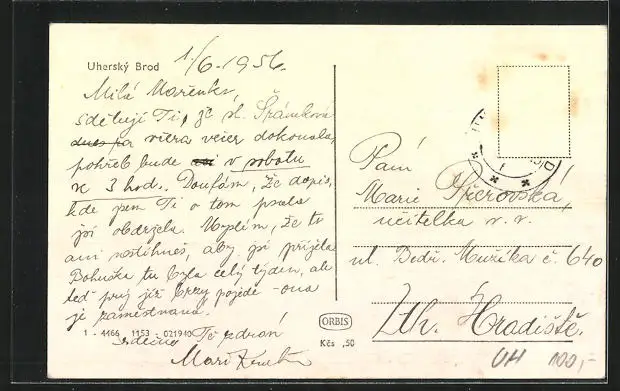 Uherský Brod
1/6-1956.
Milá Mařenko,
sděluji Ti, že sl. Šrámková
dnes ra včera večer dokonala,
pohřeb bude v sobotu
v 3 hod. Doufám, že dopis,
kde jsem Ti o tom psala
jsi obdržela. Myslím, že to
ani nestihneš, aby jsi přijela
Bohuška tu byla celý týden, ale
teď prý již brzy pojede - ona
je zaměstnána.
1 - 4466 1153 021940
Srdečně Tě zdraví
Mař.
Paní
Marie Přerovská,
učitelka v. v.
ul. Bedř. Mužíka č. 640
Uh. Hradiště.
ORBIS
Kčs ,50
UH 100,-